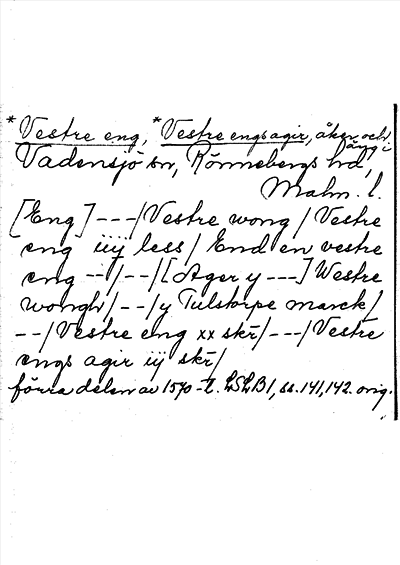 *Vestre eng, *Vestre engs agir, åker och äng i
Vadensjö sn, Rönnebergs hd,
Malm. l.
[Eng] ---/Vestre wong/Vestre
eng iiij less/End en vestre
eng --/--/[Ager y ---] Westre
wongh/--/y Tulstorpe marck/
--/Vestre eng xx skr̄/---/Vestre
engs agir iij skr̄/
förra delen av 1570-t. LSLB1, ss. 141, 142. orig.